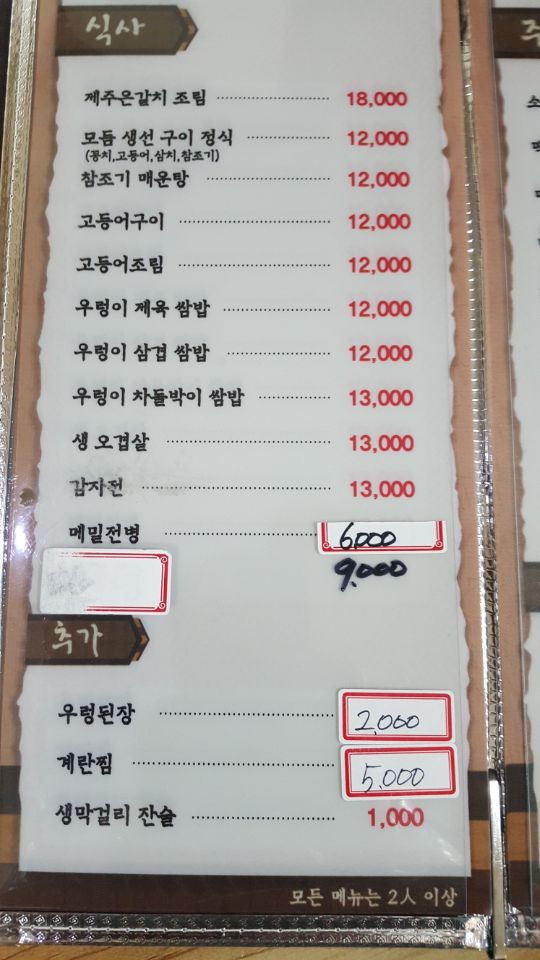 식사
제주은갈치 조림 18,000
모듬 생선 구이 정식 12,000
(꽁치,고등어,삼치,참조기)
참조기 매운탕 12,000
고등어구이 12,000
고등어조림 12,000
우렁이 제육 쌈밥 12,000
우렁이 삼겹 쌈밥 12,000
우렁이 차돌박이 쌈밥 13,000
생 오겹살 13,000
감자전 13,000
메밀전병 6,000
9,000
추가
우렁된장 2,000
계란찜 5,000
생막걸리 잔술 1,000
모든 메뉴는 2人 이상